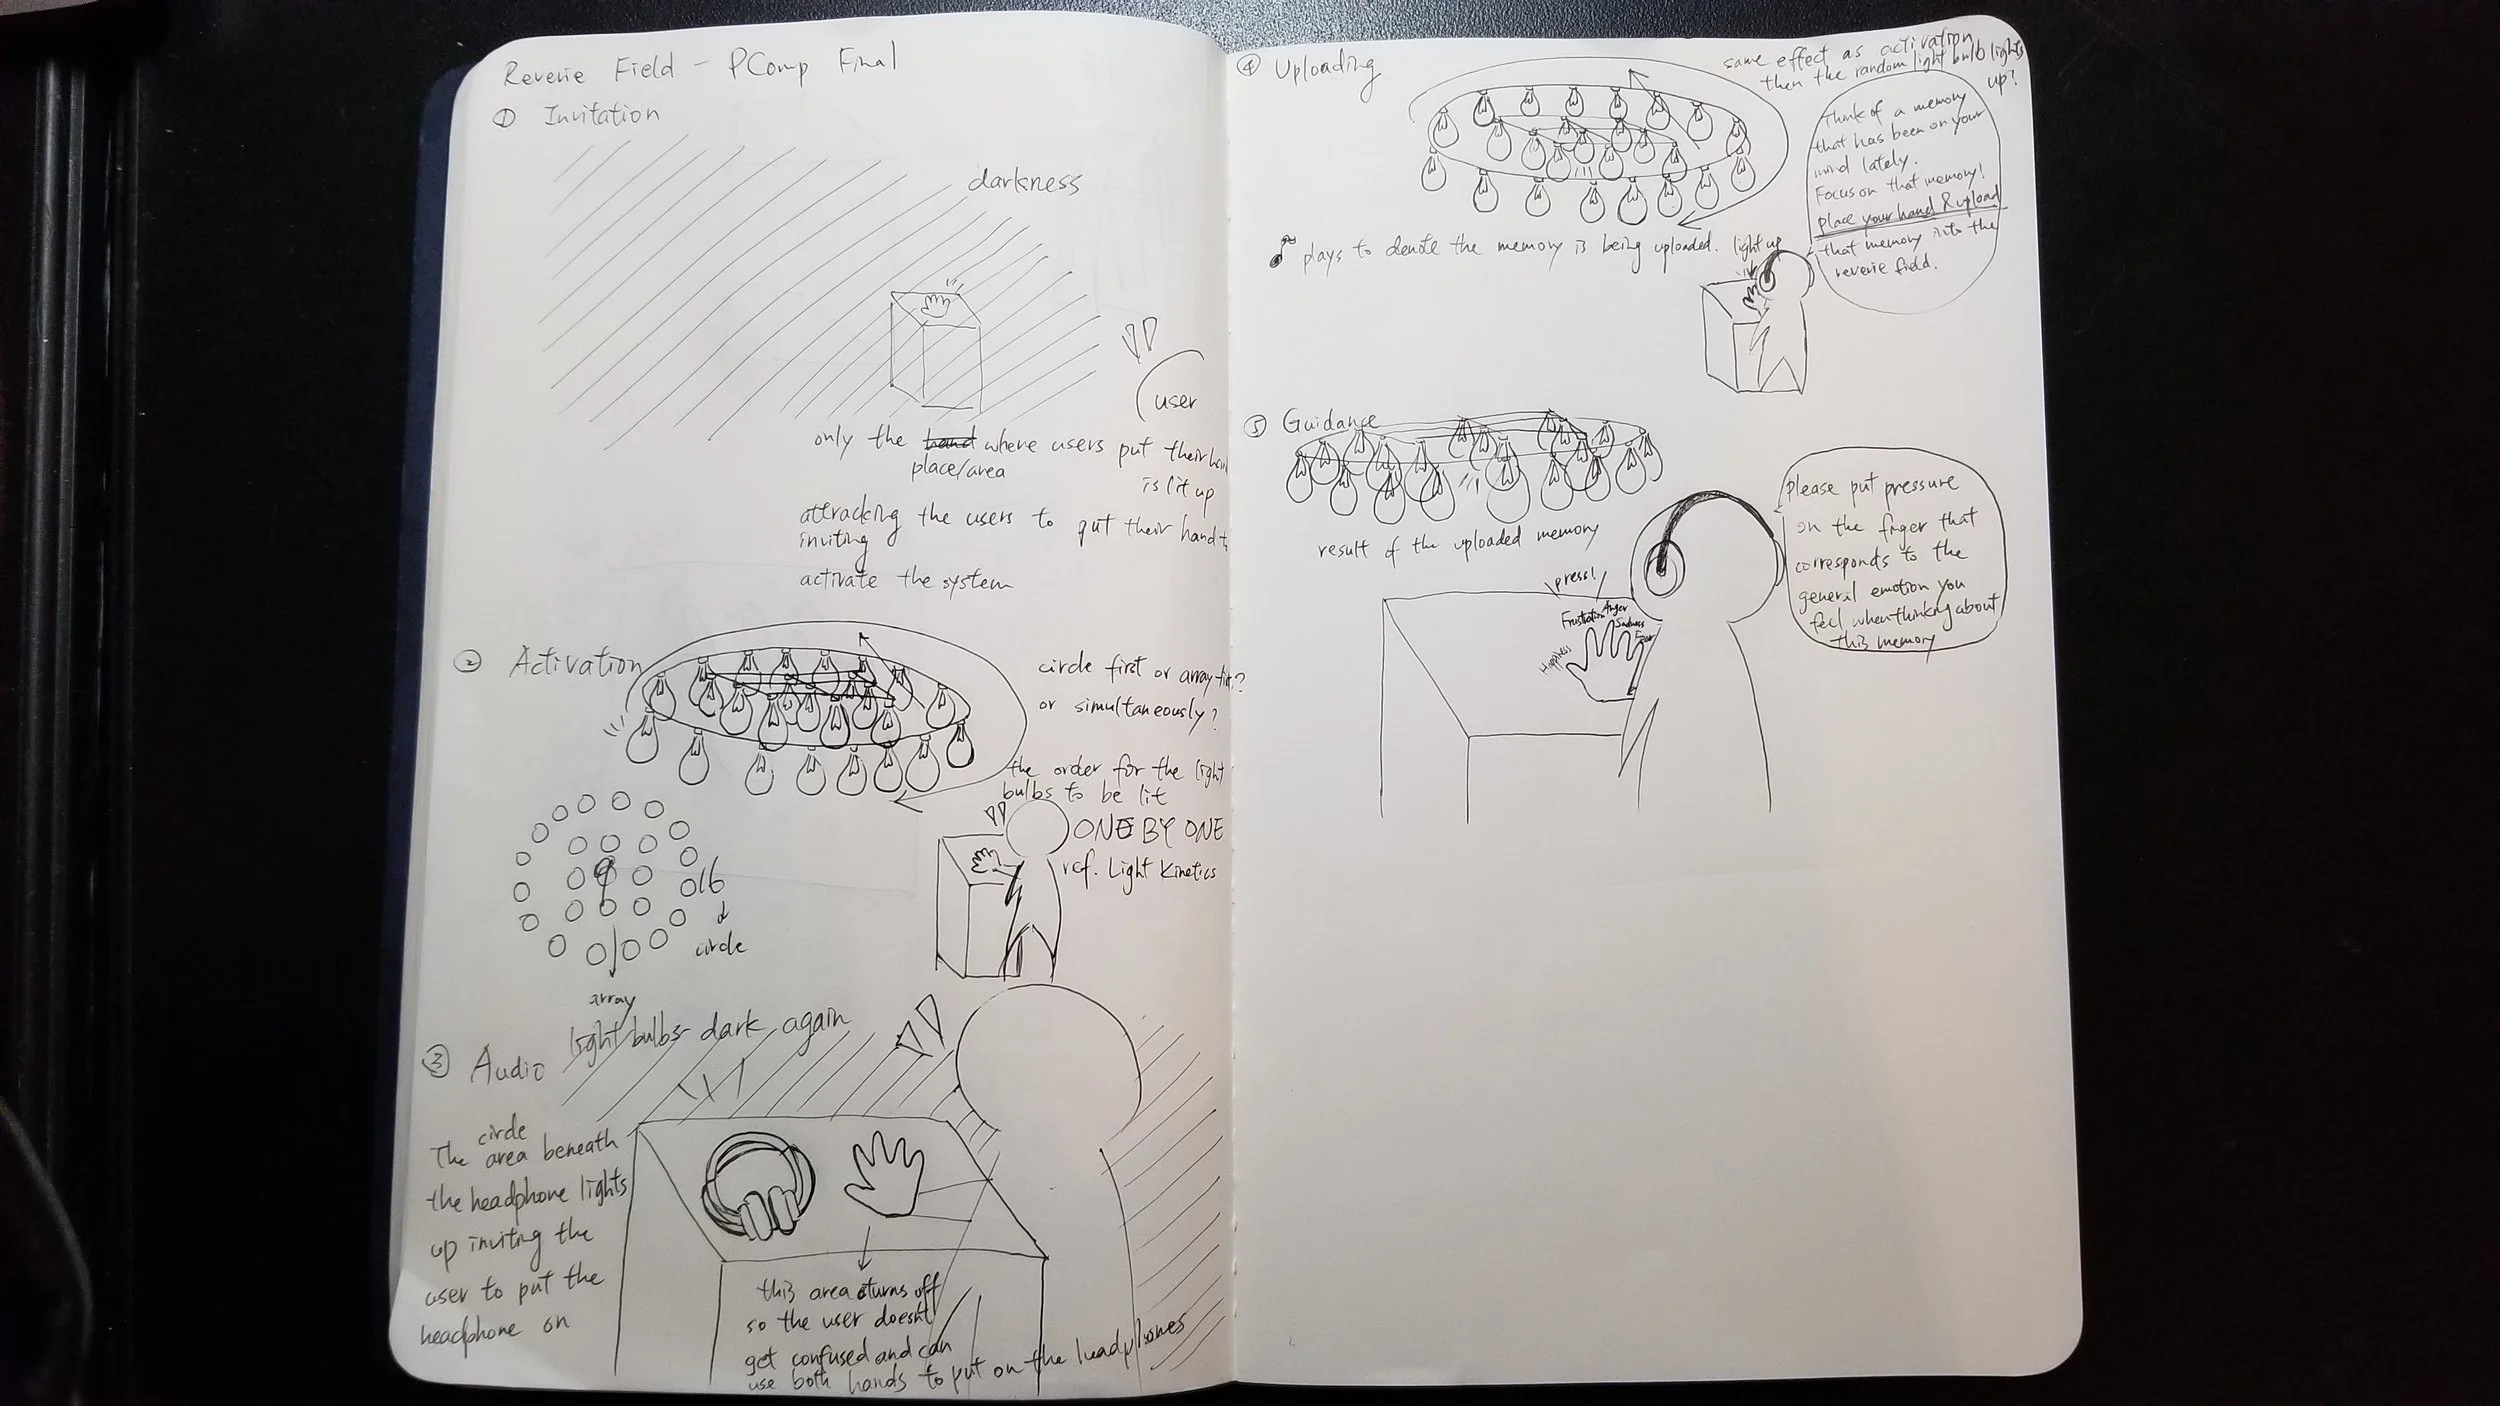 Reverie Field - PComp Final
① Invitation
darkness
user
only the hand where users put their hand
place/area
is lit up
attracting the users to put their hand to
inviting
activate the system
② Activation
circle first or array first?
or simultaneously?
the order for the light
bulbs to be lit
ONE BY ONE
ref. Light Kinetics
9
16
circle
array
light bulbs dark again
③ Audio
circle
The area beneath
the headphone lights
up inviting the
user to put the
headphone on
this area turns off
so the user doesn't
get confused and can
use both hands to put on the headphones
④ Uploading
same effect as activation
then the random light bulb lights
up?
Think of a memory
that has been on your
mind lately.
Focus on that memory!
place your hand & upload
that memory into the
reverie field.
♪ plays to denote the memory is being uploaded.
light up
⑤ Guidance
result of the uploaded memory
press!
Happiness
Frustration
Anger
Sadness
Fear
please put pressure
on the finger that
corresponds to the
general emotion you
feel when thinking about
this memory